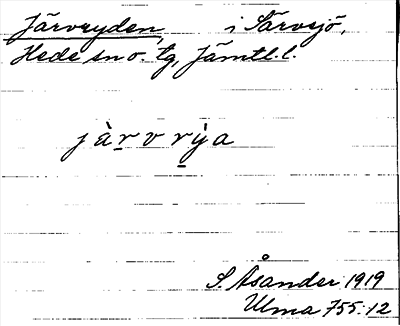 Järvryden, i Särvsjö,
Hede sn o. tg, Jämtl. l.
jàr̲vr̲ỳa
S. Åsander 1919
Ulma 755:12